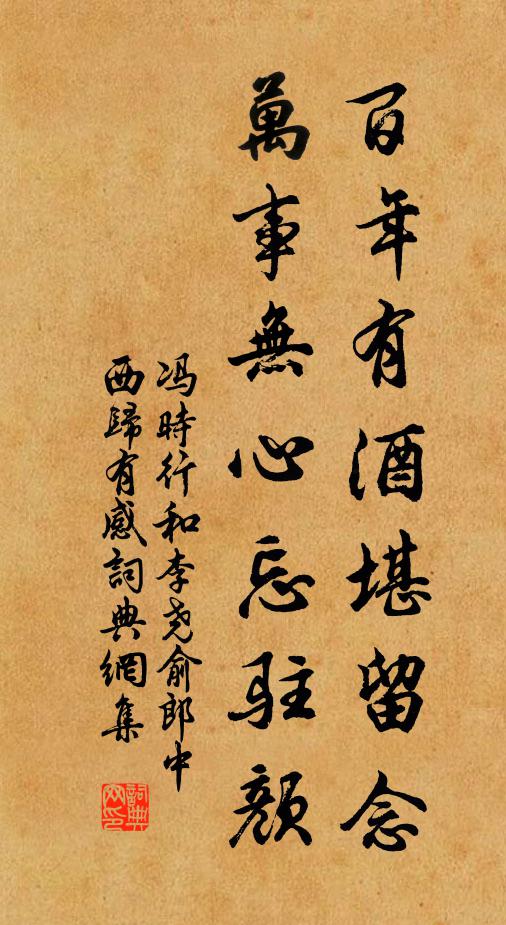 百年有酒堪留念
萬事無心忘駐顏
冯時行和李尧俞郎中
西歸有感詞典網集
詞典
网印